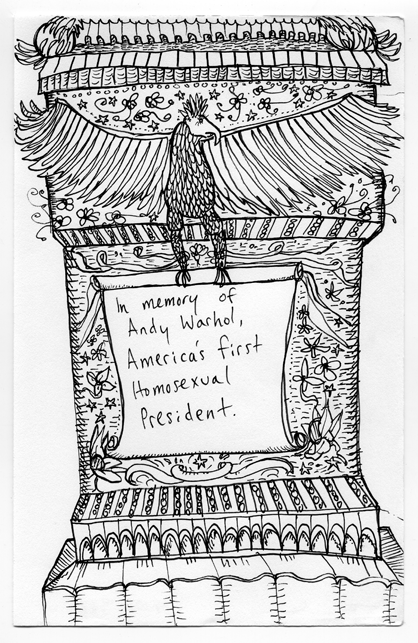 In memory of
Andy Warhol,
America's first
Homosexual
President.